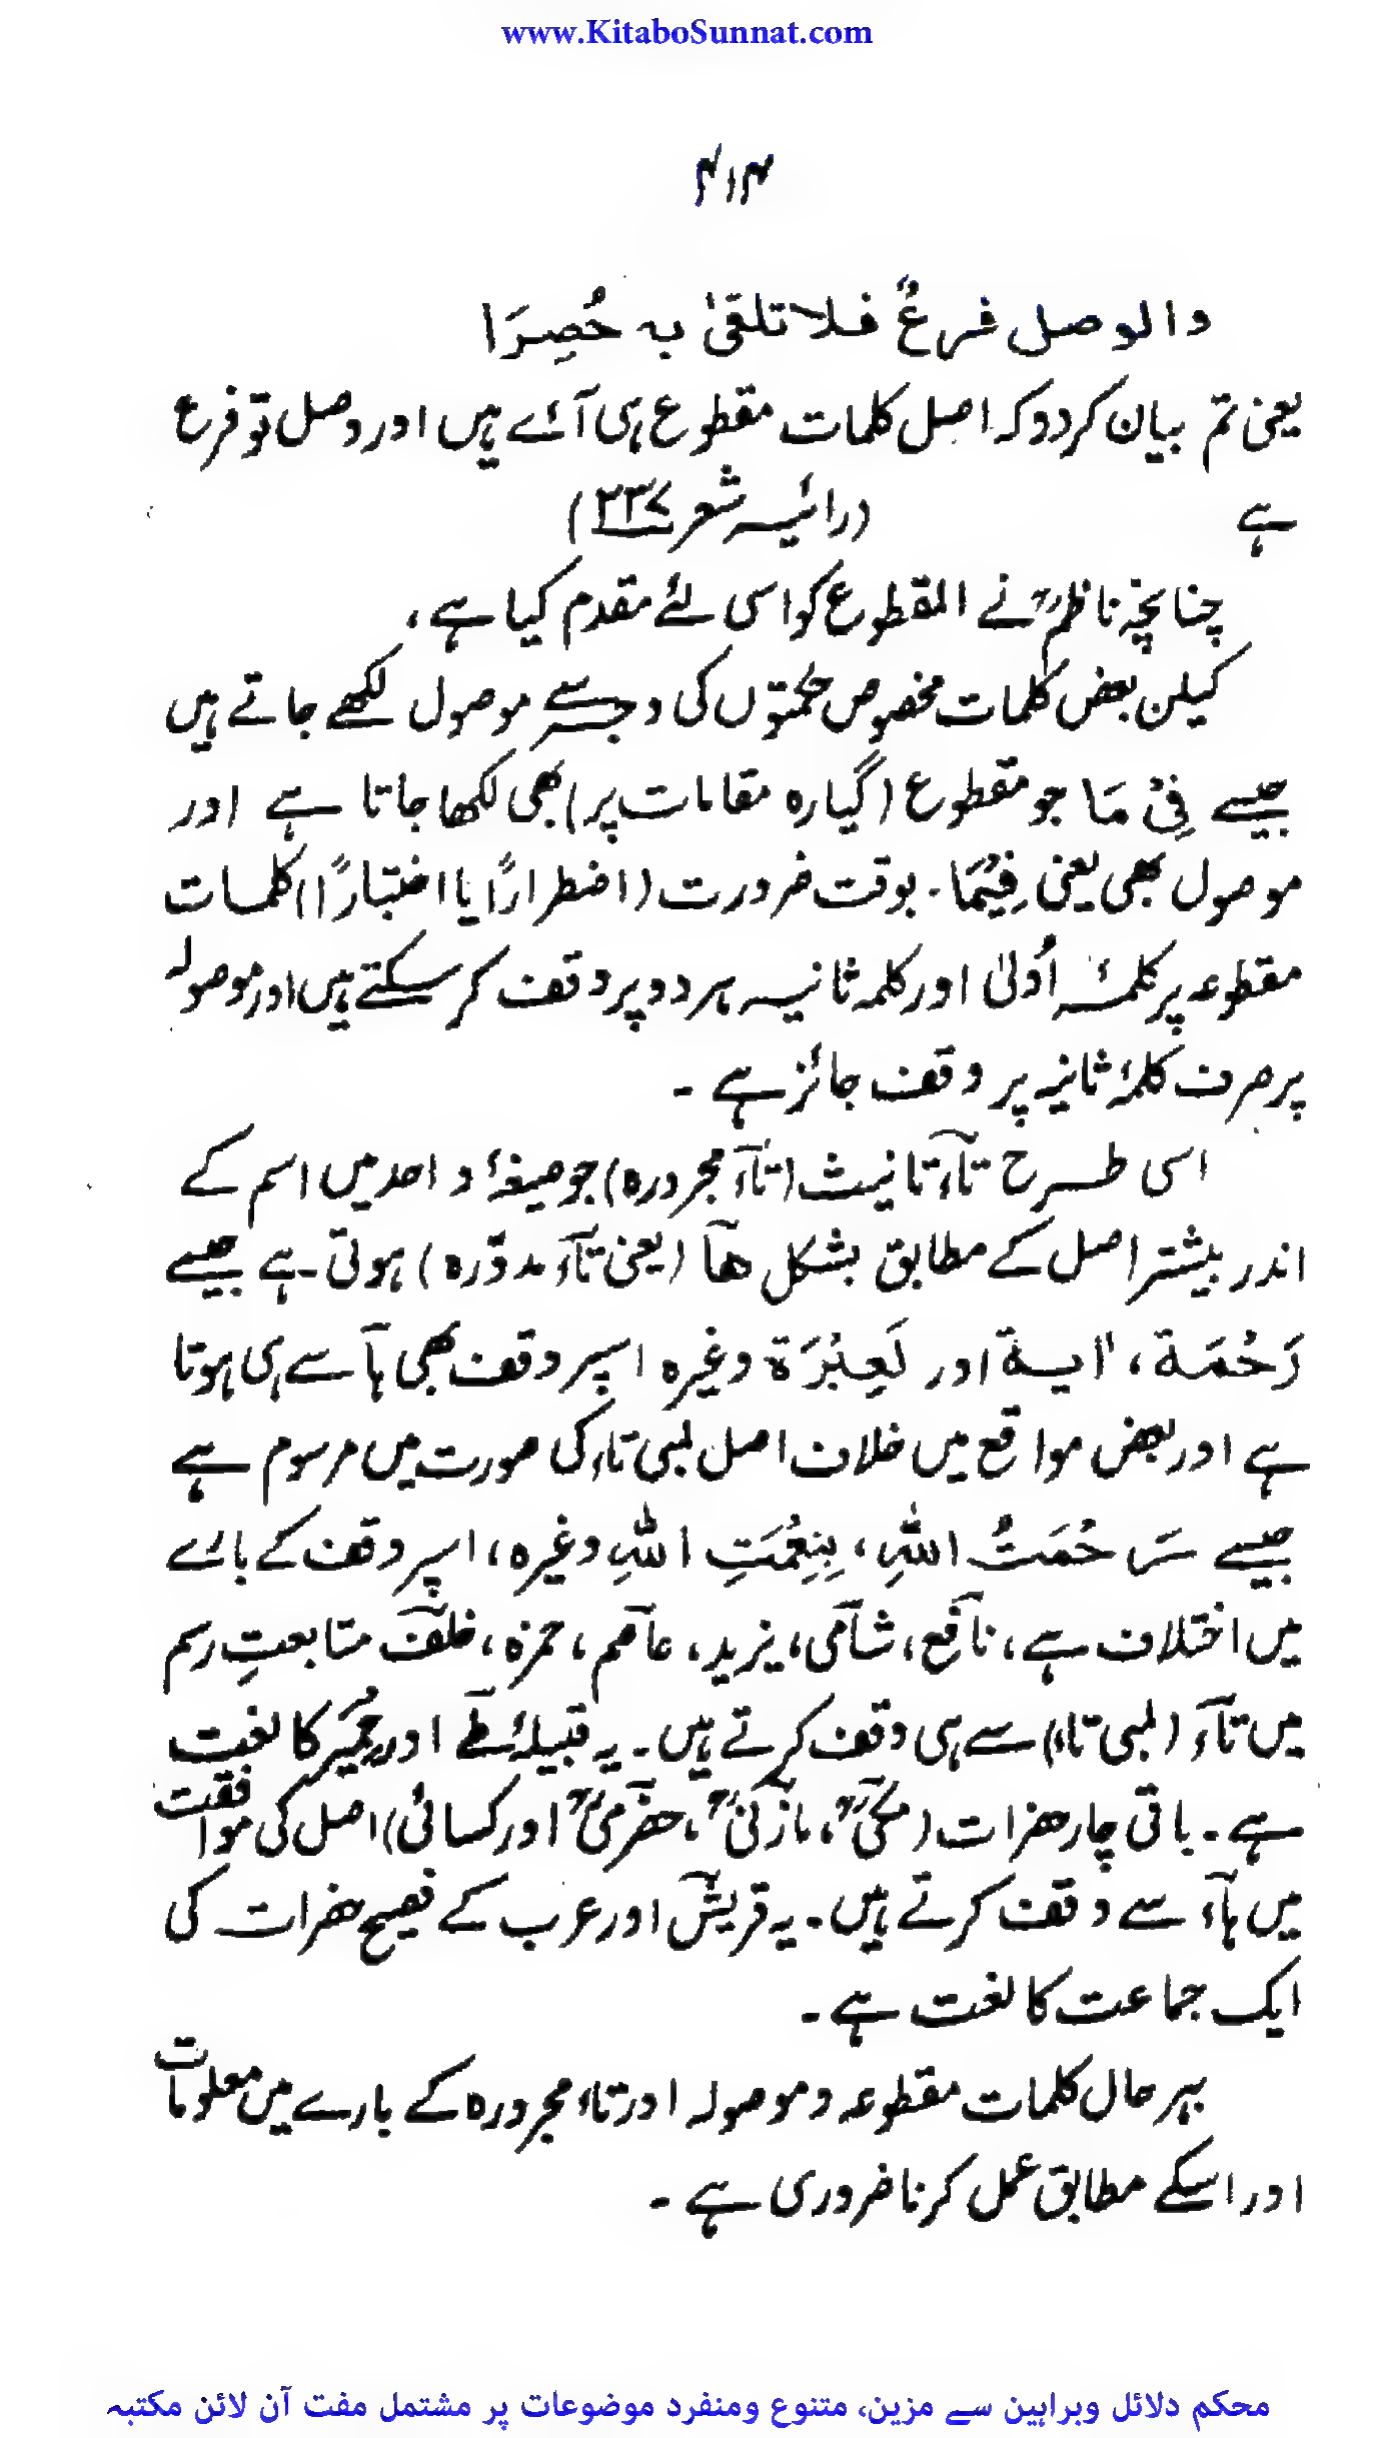 www.KitaboSunnat.com
۴۱۴
والوصل فرعٌ فلا تلقیٰ بہ حُصِرَا
یعنی تم بیان کردو کہ اصل کلمات مقطوع ہی آئے ہیں اور وصل تو فرع
ہے (رائیہ شعر ۲۳۷)
چنانچہ ناظمؒ نے المقطوع کو اسی لئے مقدم کیا ہے،
لیکن بعض کلمات مخصوص حکمتوں کی وجہ سے موصول لکھے جاتے ہیں
جیسے فِیْ مَا جو مقطوع (گیارہ مقامات پر) بھی لکھا جاتا ہے اور
موصول بھی یعنی فِیْمَا۔ بوقت ضرورت (اضطرارًا یا اختبارًا) کلمات
مقطوعہ پر کلمۂ اُولیٰ اور کلمہ ثانیہ ہر دو پر وقف کر سکتے ہیں اور موصولہ
پر صرف کلمۂ ثانیہ پر وقف جائز ہے ۔
اسی طرح تآءتانیث (تآء مجرورہ) جو صیغۂ واحد میں اسم کے
اندر بیشتر اصل کے مطابق بشکل ھآ (یعنی تآء مدوّرہ) ہوتی ہے جیسے
رَحْمَة، اٰیة اور لَعِبْرَة وغیرہ اسپر وقف بھی ہآ سے ہی ہوتا
ہے اور بعض مواقع میں خلاف اصل لمبی تاء کی صورت میں مرسوم ہے
جیسے رَحْمَتُ اللہِ، بِنِعْمَتِ اللہِ وغیرہ، اسپر وقف کے بارے
میں اختلاف ہے، نآفع، شآمی، یزید، عآصم، حمزہ، خلفؔ متابعتِ رسم
میں تآء (لمبی تاء) سے ہی وقف کرتے ہیں۔ یہ قبیلۂ طے اور حِمْیَر کا لغت
ہے۔ باقی چار حضرات (مکیؒ، مازنیؒ، حضرمیؒ اور کسائی) اصل کی موافقت
میں ہآء سے وقف کرتے ہیں۔ یہ قریش اور عرب کے فصیح حضرات کی
ایک جماعت کا لغت ہے ۔
بہر حال کلمات مقطوعہ و موصولہ اور تاء مجرورہ کے بارے میں معلومات
اور اسکے مطابق عمل کرنا ضروری ہے ۔
محکم دلائل وبراہین سے مزین، متنوع ومنفرد موضوعات پر مشتمل مفت آن لائن مکتبہ